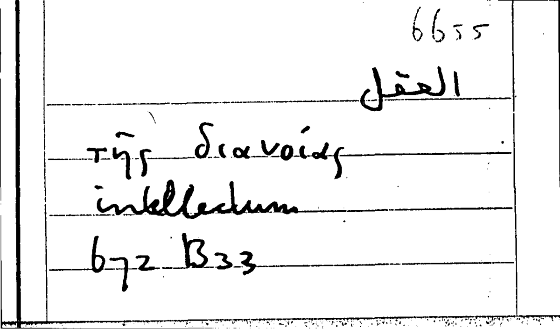 6655
العقل
τῆς διανοίας
intellectum
672 B33